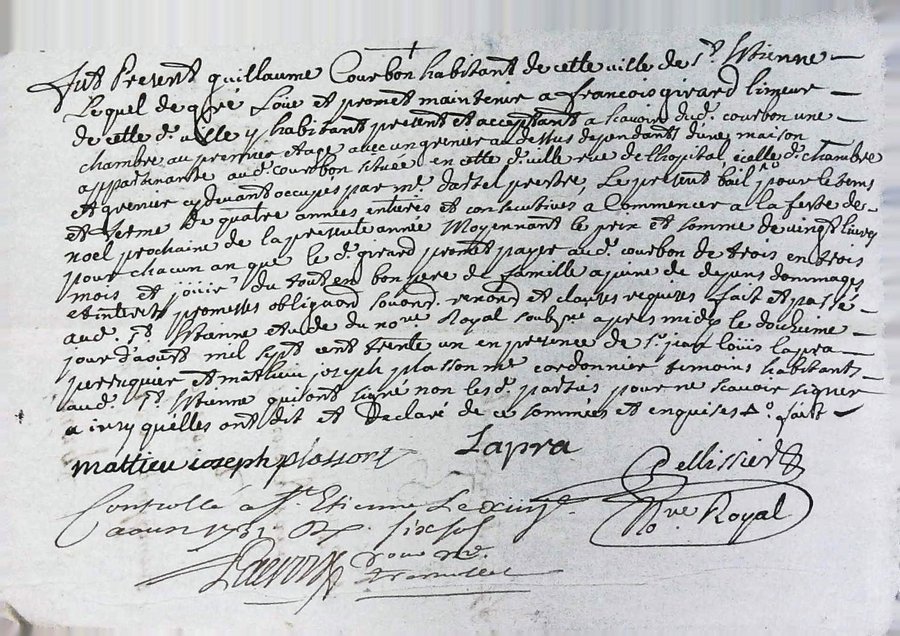 Fut Present guillaume Courbon habitant de cette ville de St Ettienne
Lequel de gré Loüe et promet maintenir a francois girard limeur
de cette de ville y habitant present et acceptant a scavoir dud. courbon une
chambre au premier etage avec un grenier au dessus dependants d'une maison
appartenante aud. courbon située en cette de ville rue de l'hopital, icelle de chambre
et grenier cy devant occupes par mr dartel prestre, Le present bail pour le tems
et terme de quatre années entieres et consecutives a Commencer a la feste de
noel prochaine de la presente année Moyennant le prix et somme de vingt livres
pour chacun an que le d. girard promet payer aud. courbon de trois en trois
mois et joüir du tout en bon pere de famille a peine de depens dommages
et interets promettes obligeans soumd. renond et clauses requises fait et passé
aud. St Ettienne etude du nore Royal soubsne apres midy le douzieme
jour d'aoust mil sept cent trente un en presence de sr jean loüis lapra
perruquier et mathieu joseph plasson me cordonnier temoins habitants
aud. St Ettienne qui ont signé non les d. parties pour ne scavoir signer
qu'elles ont dit et Declaré de ce sommées et enquises
mattieu joseph plasson Lapra
Pellissier
Nore Royal
Controllé a St Etienne Le
aoust 1731 six sols
pour mr